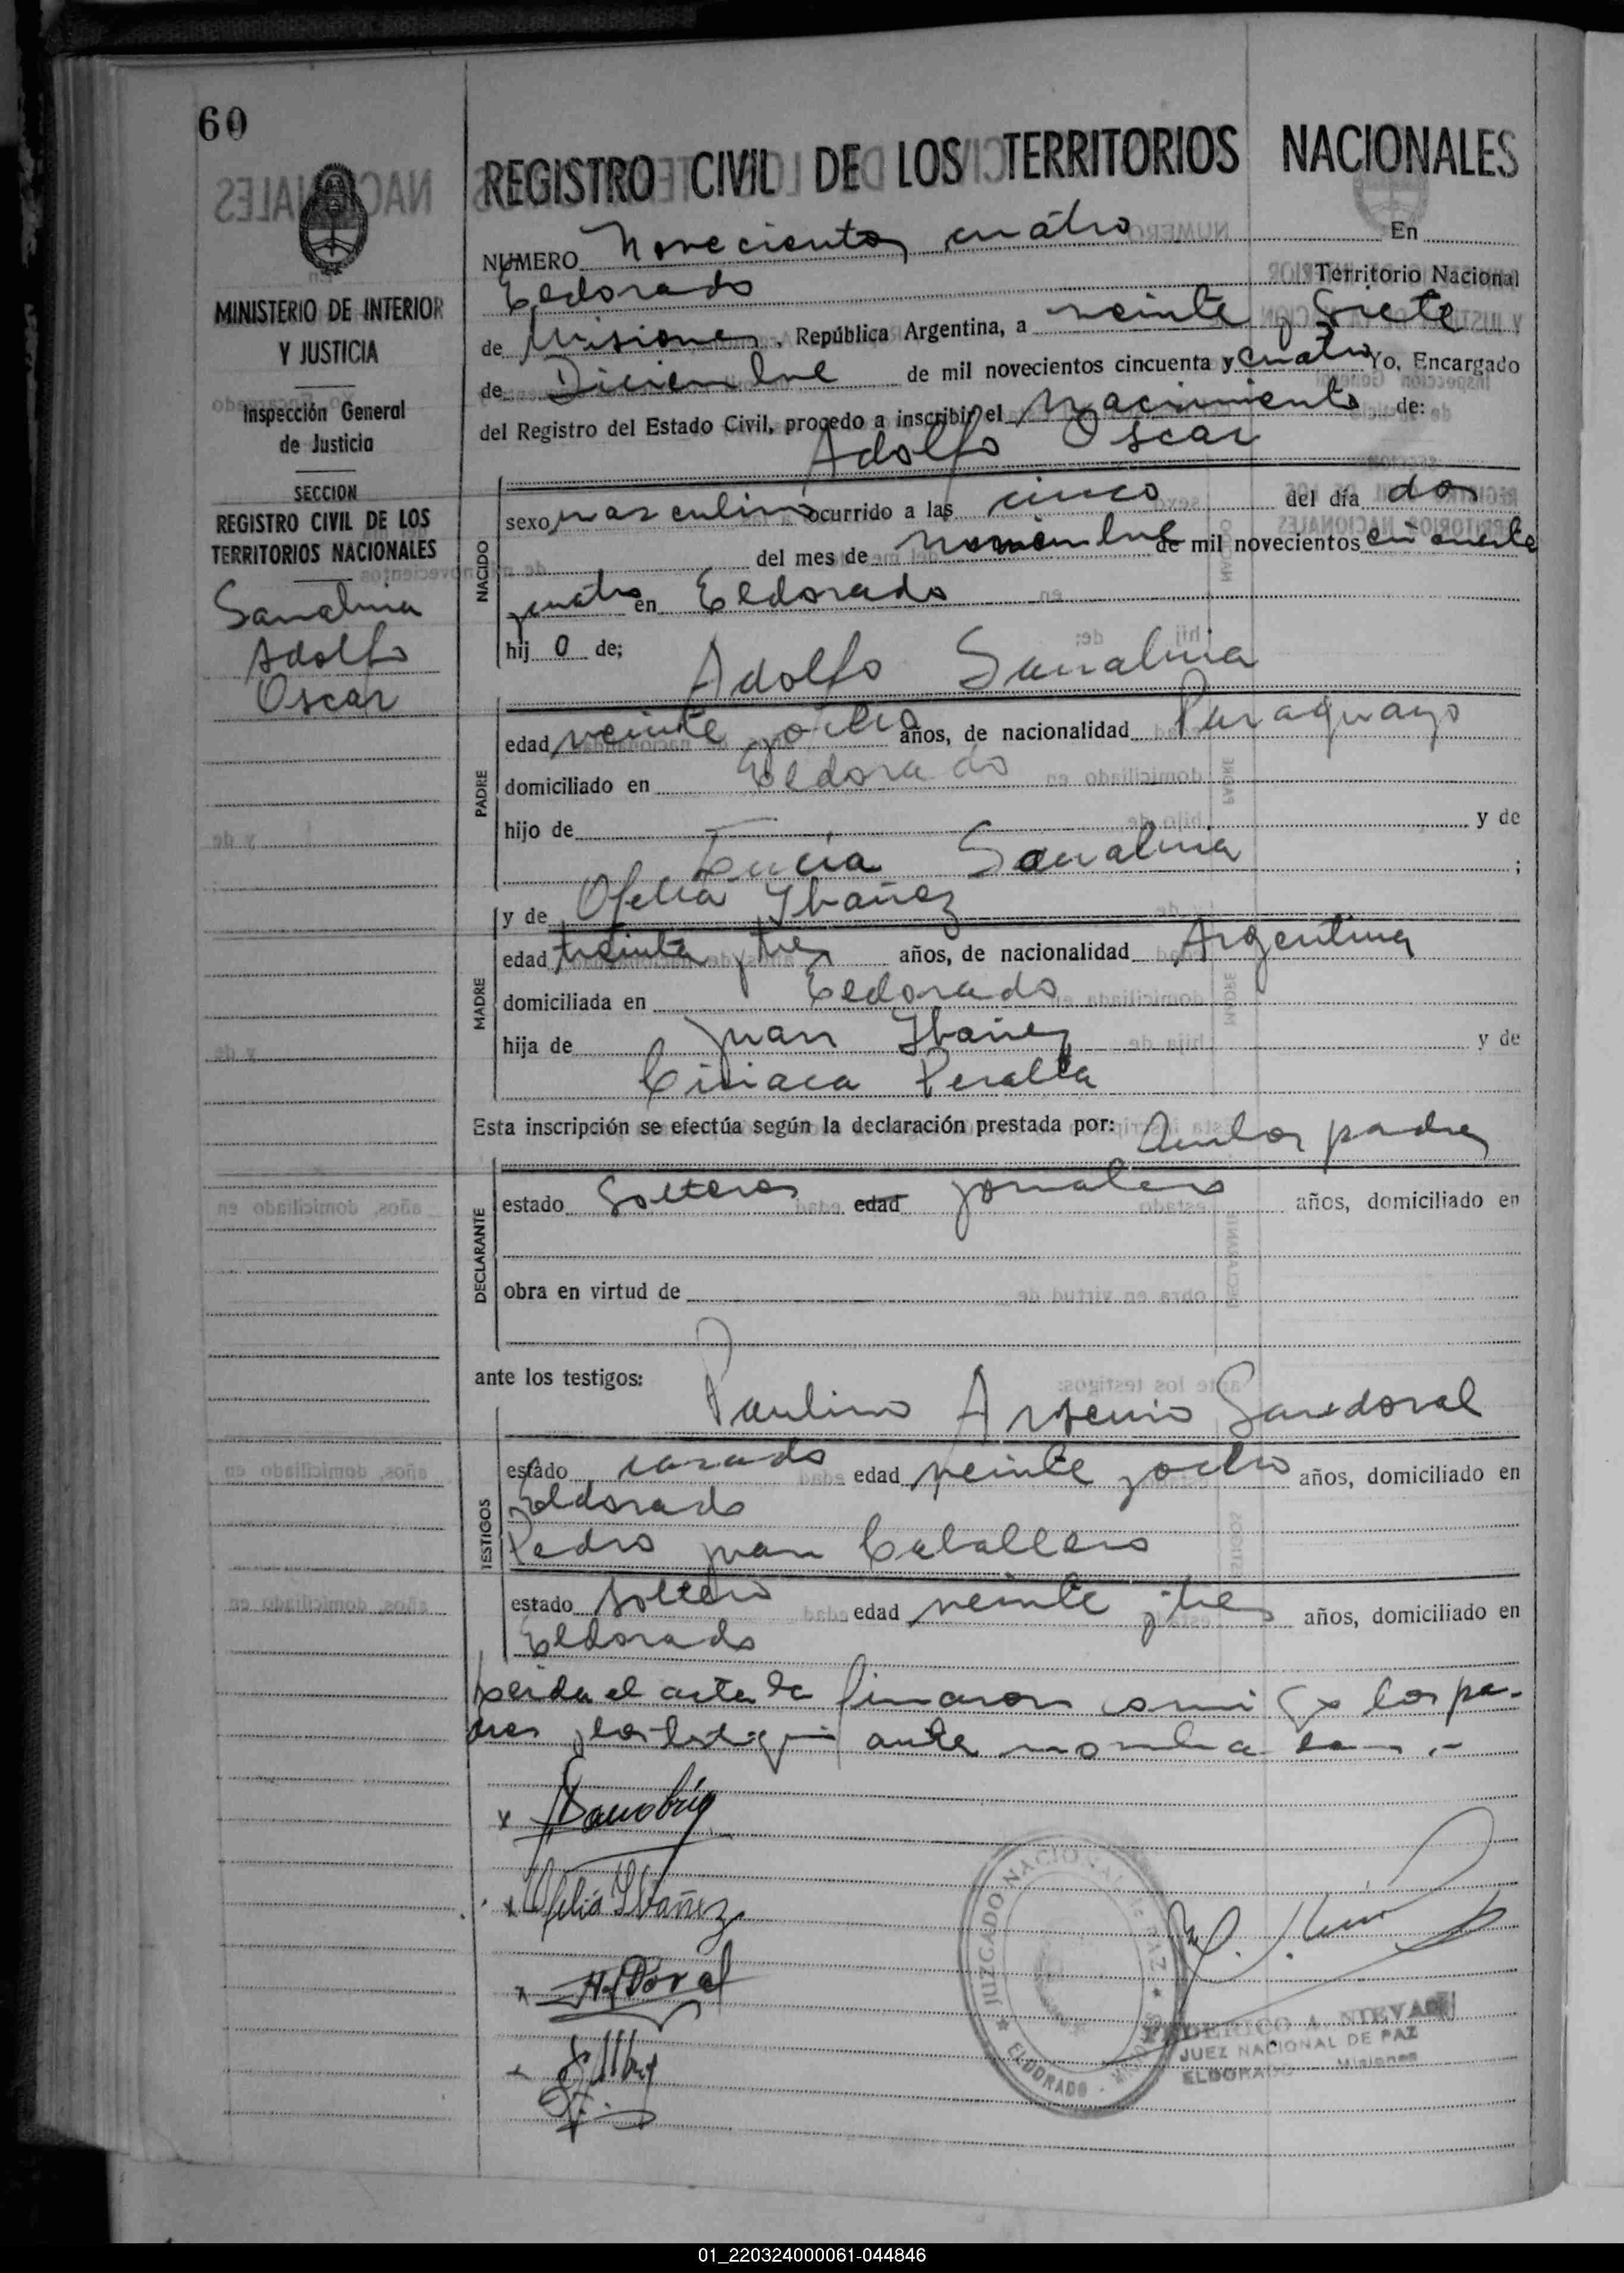 60
REGISTRO CIVIL DE LOS TERRITORIOS NACIONALES
MINISTERIO DE INTERIOR
Y JUSTICIA
Inspección General
de Justicia
SECCION
REGISTRO CIVIL DE LOS
TERRITORIOS NACIONALES
Adolfo
Oscar
NUMERO Novecientos cuatro En
Eldorado Territorio Nacional
de Misiones, República Argentina, a veinte y Siete
de Diciembre de mil novecientos cincuenta y cuatro Yo, Encargado
del Registro del Estado Civil, procedo a inscribir el Nacimiento de:
Adolfo Oscar
NACIDO
sexo masculino ocurrido a las cinco del día dos
del mes de noviembre de mil novecientos cincuenta
y cuatro en Eldorado
hij o de;
Adolfo
PADRE
edad veinte y ocho años, de nacionalidad Paraguayo
domiciliado en Eldorado
hijo de y de
Lucia ;
y de Ofelia Ybañez
MADRE
edad treinta y tres años, de nacionalidad Argentina
domiciliada en Eldorado
hija de Juan Ybañez y de
Ciriaca Peralta
Esta inscripción se efectúa según la declaración prestada por: Ambos padres
DECLARANTE
estado Solteros edad jornalero años, domiciliado en
obra en virtud de
ante los testigos:
Paulino Arsenio Sandoval
TESTIGOS
estado casado edad veinte y ocho años, domiciliado en
Eldorado
Pedro Juan Caballero
estado soltero edad veinte y tres años, domiciliado en
Eldorado
Leida el acta la firmaron conmigo los pa-
dres y los testigos ante nombrados.-
x Ofelia Ybañez
JUZGADO NACIONAL DE PAZ
ELDORADO
FEDERICO A. NIEVAS
JUEZ NACIONAL DE PAZ
ELDORADO Misiones
01_220324000061-044846